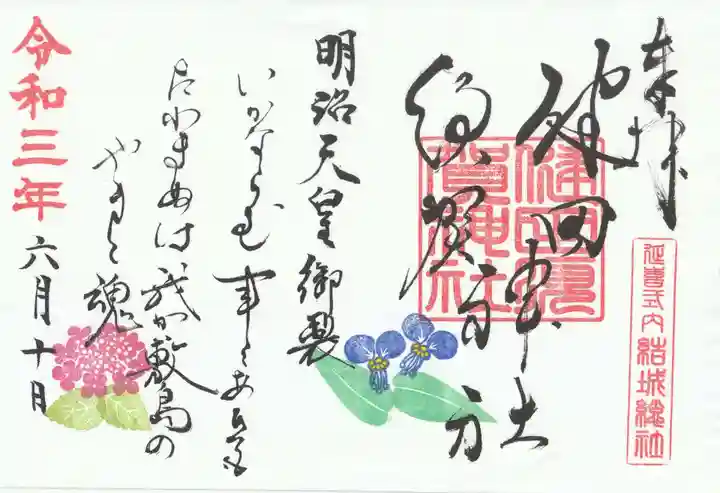 奉拝
延喜式内 結城總社
健田神社
須賀神社
健田須
賀神社
明治天皇御製
いかならむ 事にあひても
たわまぬは 我か敷島の
やまと魂
令和三年六月十日